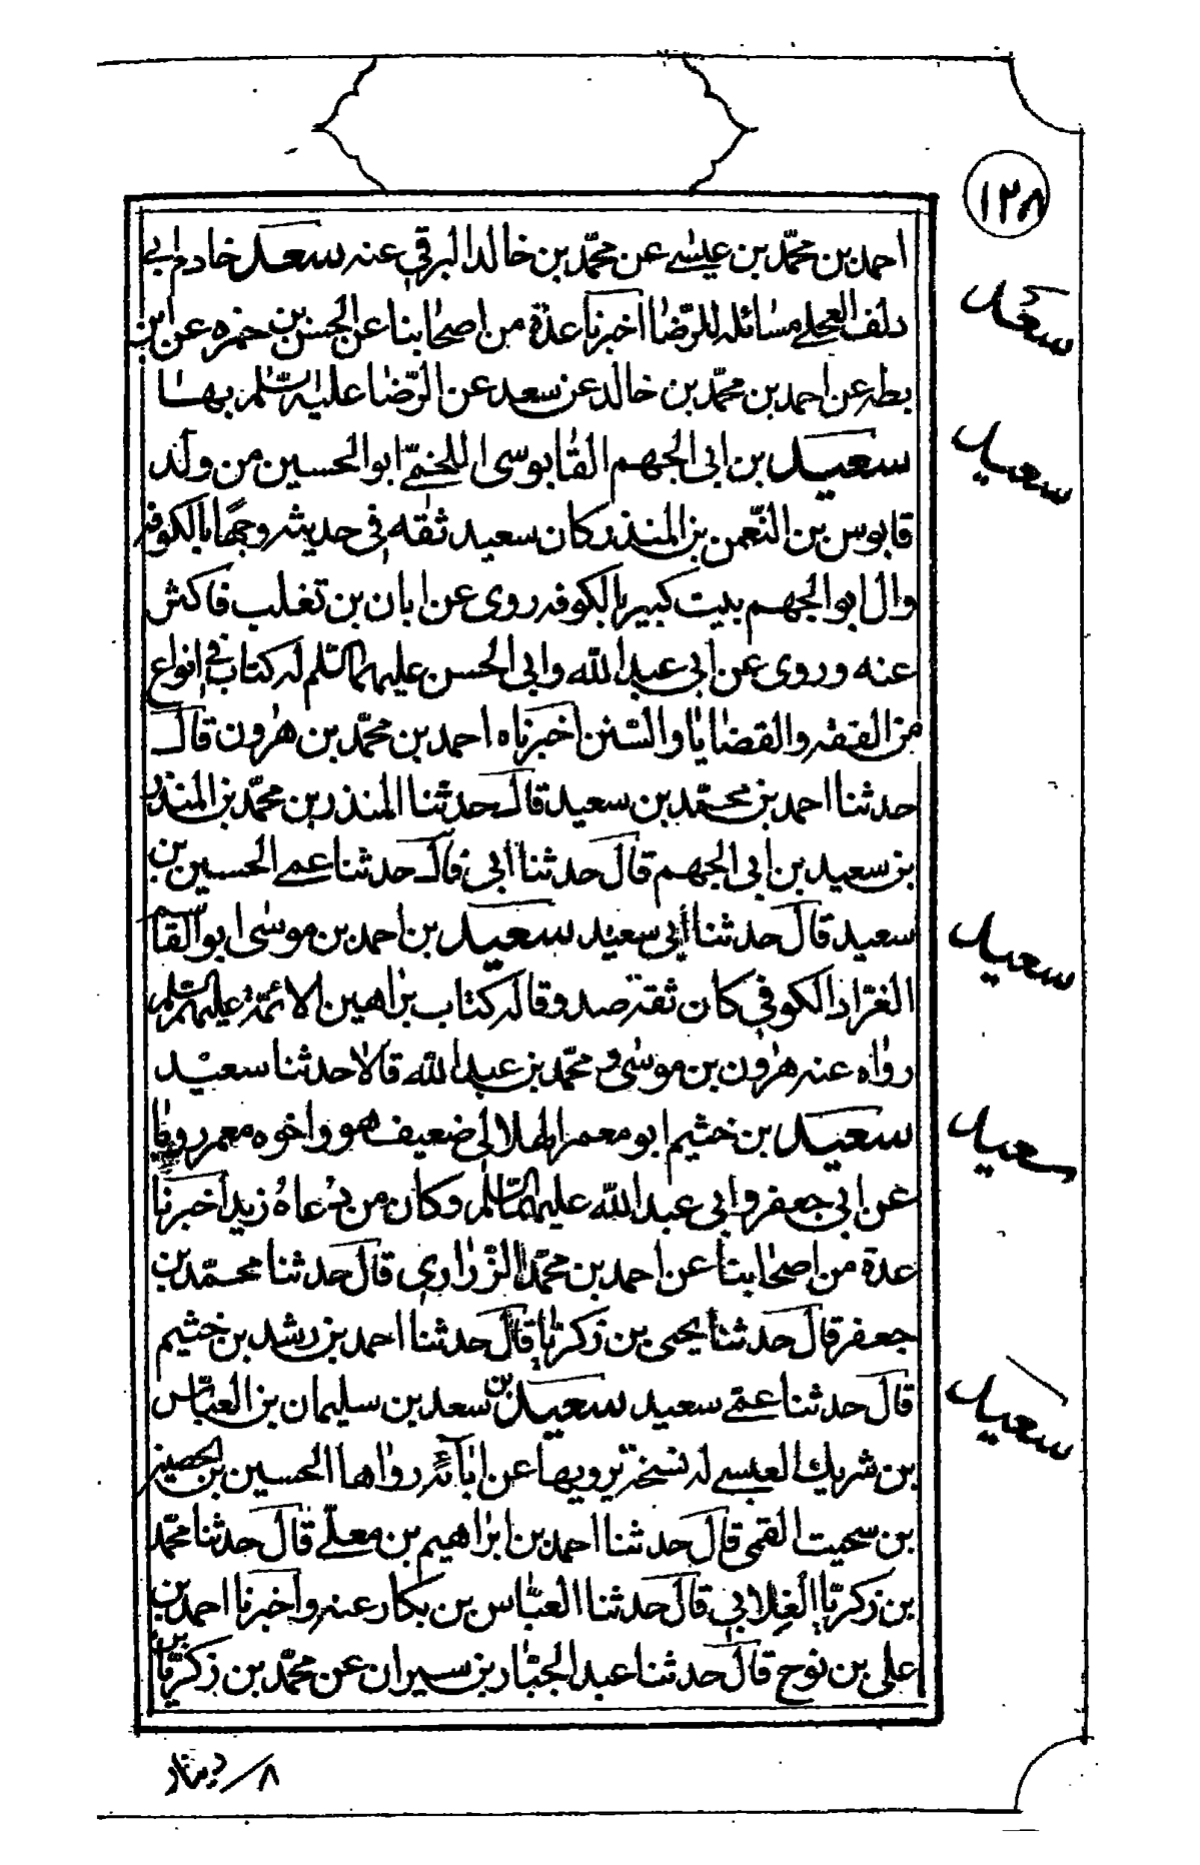 ١٢٨
احمد بن محمّد بن عيسى عن محمّد بن خالد البرقي عنه سعد خادم ابي
دلف العجلي مسائله للرّضا اخبرنا عدة من اصحابنا عن الحسن بن حمزه عن ابن
بطه عن احمد بن محمّد بن خالد عن سعد عن الرّضا عليه السّلم بها
سعيد بن ابى الجهم القابوسى اللخمّى ابو الحسين من ولد
قابوس بن النّعمن بن المنذر كان سعيد ثقه في حديثه وجها بالكوفه
وال ابو الجهم بيت كبير بالكوفه روى عن ابان بن تغلب فاكثر
عنه وروى عن ابي عبد الله وابى الحسن عليهما السّلم له كتاب في انواع
من الفقه والقضايا والسّنن اخبرناه احمد بن محمّد بن هرون قال
حدثنا احمد بن محمّد بن سعيد قال حدثنا المنذر بن محمّد بن المنذر
بن سعيد بن ابى الجهم قال حدثنا أبى قال حدثنا عمى الحسين بن
سعيد قال حدثنا أبى سعيد سعيد بن احمد بن موسى ابو القاسم
الغرّاد الكوفي كان ثقة صدوقا له كتاب براهين الائمّة عليهم السّلم
رواه عنه هرون بن موسى و محمّد بن عبد الله قالا حدثنا سعيد
سعيد بن خثيم ابو معمر الهلالي ضعيف هو واخوه معمر رويا
عن ابي جعفر وابي عبد الله عليهما السّلم وكان من دعاة زيد اخبرنا
عدة من اصحابنا عن احمد بن محمّد الزّراري قال حدثنا محمّد بن
جعفر قال حدثنا يحيى بن زكريّا قال حدثنا احمد بن رشد بن خثيم
قال حدثنا عمّى سعيد سعيد بن سعد بن سليمان بن العبّاس
بن شريك العبسى له نسخة يرويها عن ابآئه رواها الحسين بن الحصين
بن سحيت القمى قال حدثنا احمد بن ابراهيم بن معلّى قال حدثنا محمّد
بن زكريّا الغلابي قال حدثنا العبّاس بن بكار عنه واخبرنا احمد بن
على بن نوح قال حدثنا عبد الجبّار بن سيران عن محمّد بن زكريّا بن
سعد
سعيد
سعيد
سعيد
سعيد
٨/دينار